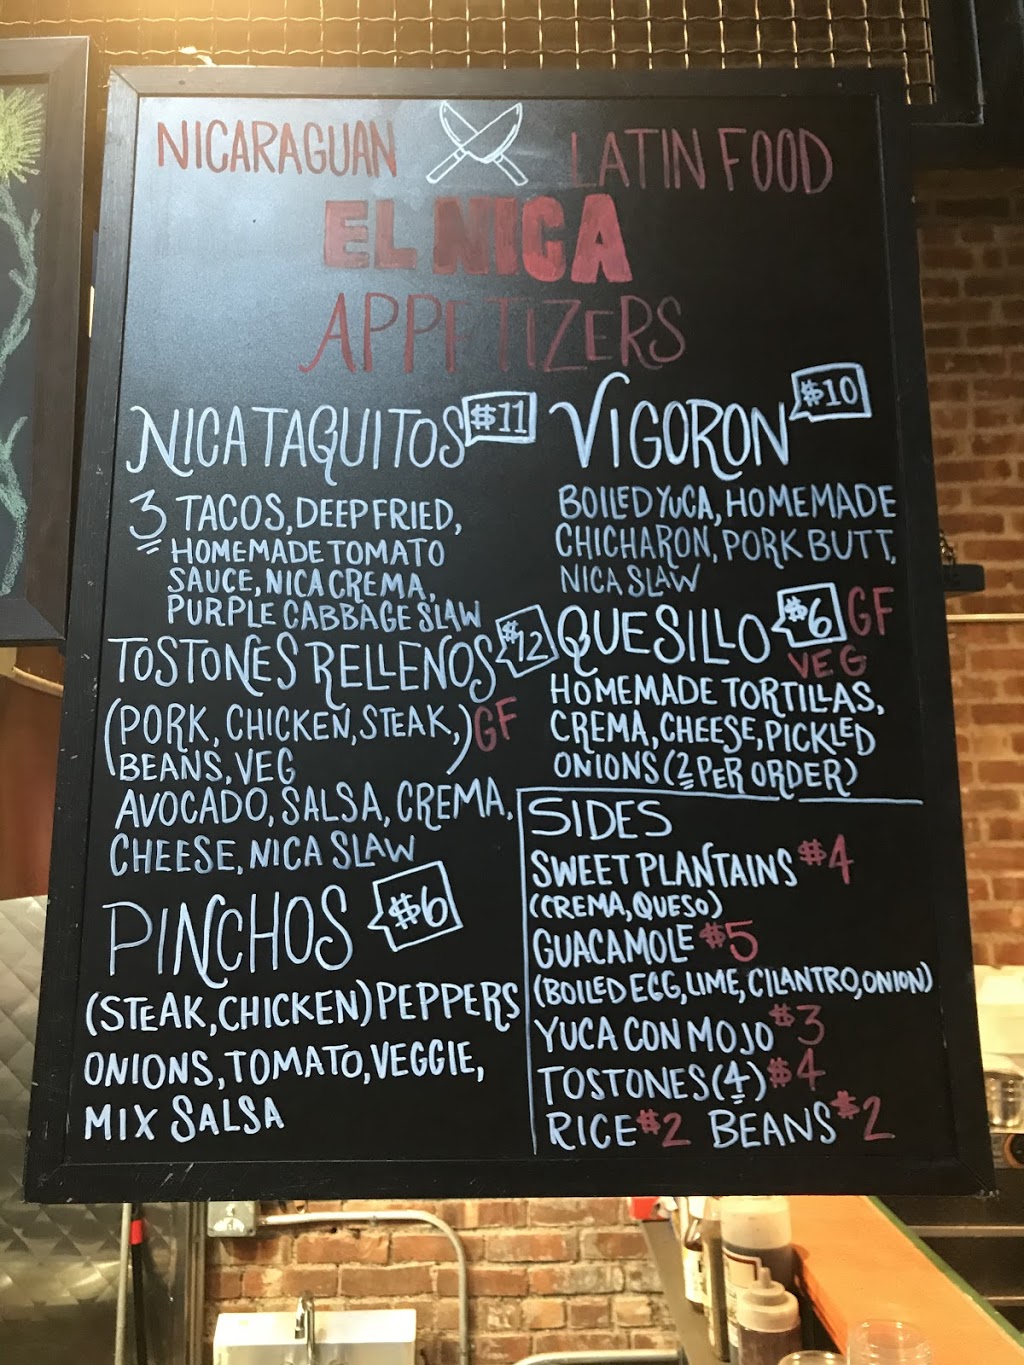 NICARAGUAN LATIN FOOD
EL NICA
APPETIZERS
NICA TAQUITOS $11
3 TACOS, DEEP FRIED,
HOMEMADE TOMATO
SAUCE, NICA CREMA,
PURPLE CABBAGE SLAW
TOSTONES RELLENOS $12
(PORK, CHICKEN, STEAK,) GF
BEANS, VEG
AVOCADO, SALSA, CREMA,
CHEESE, NICA SLAW
PINCHOS $6
(STEAK, CHICKEN) PEPPERS
ONIONS, TOMATO, VEGGIE,
MIX SALSA
VIGORON $10
BOILED YUCA, HOMEMADE
CHICHARON, PORK BUTT,
NICA SLAW
QUESILLO $6 GF
VEG
HOMEMADE TORTILLAS,
CREMA, CHEESE, PICKLED
ONIONS (2 PER ORDER)
SIDES
SWEET PLANTAINS $4
(CREMA, QUESO)
GUACAMOLE $5
(BOILED EGG, LIME, CILANTRO, ONION)
YUCA CON MOJO $3
TOSTONES (4) $4
RICE $2 BEANS $2